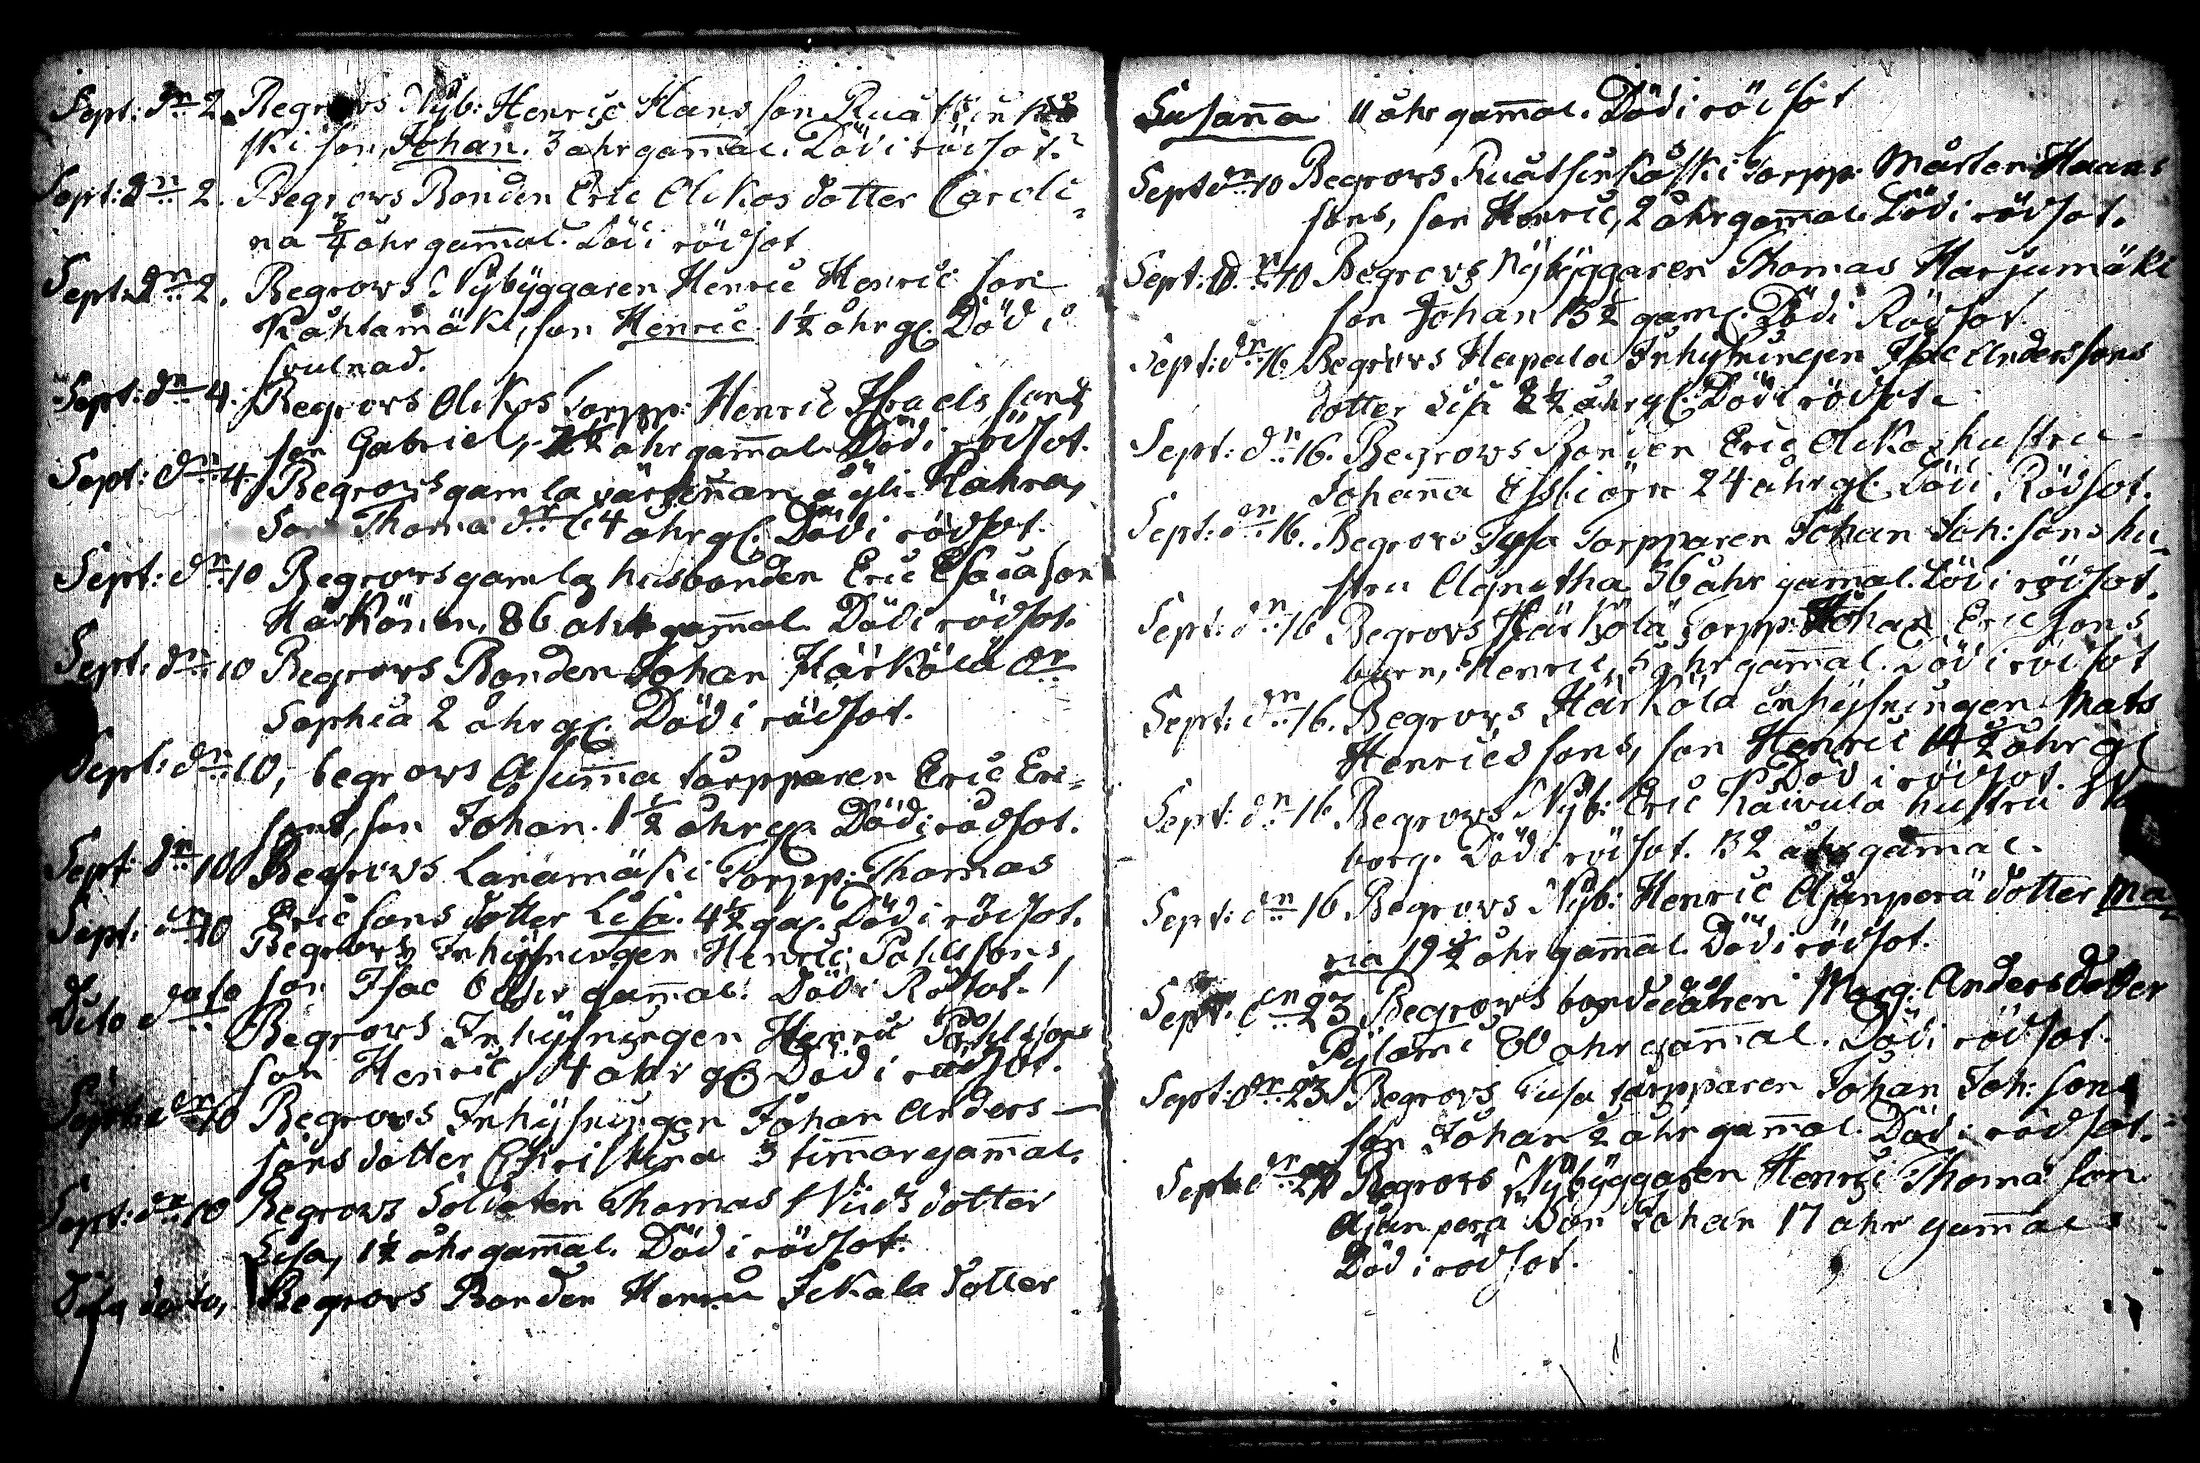 Sept: dn 2. Begrovs Nyb: Henric Hans son Ruåtsinkås
ski son, Johan. 3 åhr gam̄al. Död i rödsot.
Sept: dn 2. Begrovs Bonden Eric Olikos dotter Caroli-
na ¾ åhr gam̄al. Död i rödsot
Sept: dn 2. Begrovs Nybyggaren Henric Henric son
Kåhtamäki, son Henric 1½ åhr gl. Död i
svulnad.
Sept: dn 4. Begrovs Olikos Torpp: Henric Israels sons
son Gabriel, 2½ åhr gam̄al. Död i rödsot.
Sept: dn 4. Begrovs gamla värdin̄an å Yli-Rahra,
Thoma dr 64 åhr gl. Död i rödsot.
Sept: dn 10 Begrovs gamla husbonden Eric Esaiason
Härkönen, 86 åhr gam̄al. Död i rödsot.
Sept: dn 10 Begrovs Bonden Johan Härkölä dr
Sophia 2 åhr gl. Död i rödsot.
Sept: dn 10, begrovs Asum̄a torpparen Eric Eri-
sons, son Johan. 1½ åhr gl. Död i rödsot.
Sept dn 10 Begrovs Lanamäki Torpp: Thomas
Ericsons dotter Lisa. 4½ gal. Död i rödsot.
Sept: dn 10 Begrovs Inhysningen Henric Påhlssons,
son Isac 6 åhr gam̄al. Död i Rödsot.
Dito dato Begrovs Inhysningen Henric Påhlssons
son Henric, 4 åhr gl. Död i rödsot.
Sept: dn 10 Begrovs Inhysningen Johan Anders-
sons dotter Christina 3 tim̄ar gam̄al.
Sept: dn 10 Begrovs Soldaten Thomas Nids dotter
Lisa, 1½ åhr gam̄al. Död i rödsot.
Dito dato, Begrovs Bonden Henric Ickala dotter
Susan̄a 11 åhr gam̄al. Död i rödsot
Sept dn 10 Begrovs Ruåtsinkåski Torpp: Mårten Hans
sons, son Henric, 2 åhr gam̄al. Död i rödsot.
Sept: dn 10 Begrovs Nybyggaren Thomas Harjumäki
son Johan 13½ gaml. Död i Rödsot
Sept: dn 16 Begrovs Hapala Inhysningen Isac Anderssons
dotter Lisa 2½ åhr gl. Död i rödsot.
Sept: dn 16. Begrovs Bonden Eric Olikos hustru
Johan̄a Essbiörn 24 åhr gl. Död i Rödsot.
Sept: dn 16. Begrovs Tysa Torpparen Johan Joh: sons hu-
stru Agnetha 36 åhr gam̄al. Död i rödsot.
Sept: dn 16 Begrovs Härkölä Torpp: Johan Ericsons
barn, Henric, 5 åhr gam̄al. Död i rödsot
Sept: dn 16. Begrovs Härkölä inhysningen Mats
Henrics sons, son Henric 14½ åhr gl
Död i rödsot.
Sept: dn 16 Begrovs Nyb: Eric Kaivula hustru
borg. Död i rödsot. 32 åhr gam̄al.
Sept: dn 16 Begrovs Nyb: Henric Ajanperä dotter Ma-
ria 19½ åhr gam̄al. Död i rödsot.
Sept. dn 23 Begrovs bondeenkan Marg: Anders dotter
Pylami 80 åhr gam̄al. Död i rödsot.
Sept: dn 23 Begrovs Tusa torpparen Johan Joh: sons
son Johan 2 åhr gam̄al. Död i rödsot.
Sept: dn Begrovs Nybyggaren Henric Thoma son
Ajanperä Son Johan 17 åhr gam̄al
Död i rödsot.